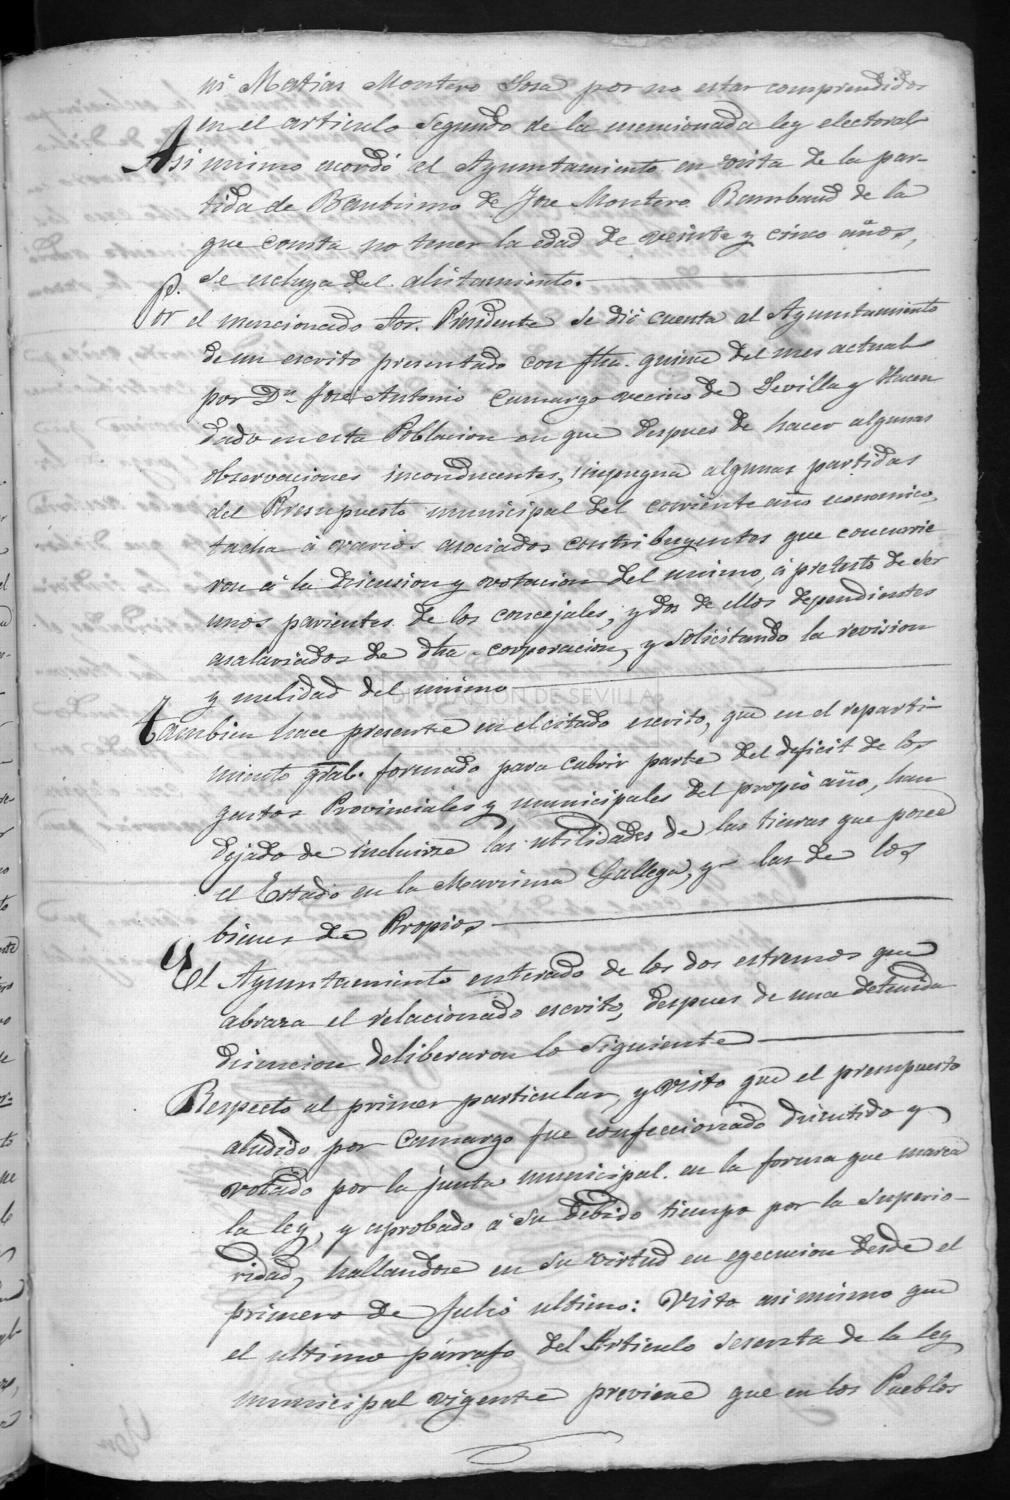 ni Matias Montero Sosa por no estar comprendidos
en el articulo segundo de la mencionada ley electoral
Asi mismo acordó el Ayuntamiento en vista de la par-
tida de Bautismo de Jose Montero Bambaud de la
que consta no tener la edad de veinte y cinco años,
se escluya del alistamiento.
Por el mencionado Sor. Presidente se dió cuenta al Ayuntamiento
de un escrito presentado con fha. quince del mes actual
por Dn. José Antonio Camargo vecino de Sevilla y Hacen
dado en esta Poblacion en que despues de hacer algunas
observaciones inconducentes, impugna algunas partidas
del Presupuesto municipal del corriente año economico,
tacha á varios asociados contribuyentes que concurrie
ron á la discusion y votacion del mismo, á pretesto de ser
unos parientes de los concejales, y dos de ellos dependientes
asalariados de dha. corporacion, y solicitando la revision
y nulidad del mismo
DIPUTACIÓN DE SEVILLA
Tambien hace presente en el citado escrito, que en el reparti-
miento gral. formado para cubrir parte del deficit de los
gastos Provinciales y municipales del propio año, han
dejado de incluirse las utilidades de las tierras que posee
el Estado en la Marisma Gallega, y las de los
bienes de Propios
El Ayuntamiento enterado de los dos estremos que
abraza el relacionado escrito, despues de una detenida
discusion deliberaron lo siguiente
Respecto al primer particular, y visto que el presupuesto
aludido por Camargo fue confeccionado discutido y
votado por la junta municipal en la forma que marca
la ley, y aprobado á su debido tiempo por la Superio-
ridad, hallandose en su virtud en egecucion desde el
primero de Julio ultimo: Visto asi mismo que
el ultimo párrafo del Articulo sesenta de la ley
municipal vigente previene que en los Pueblos